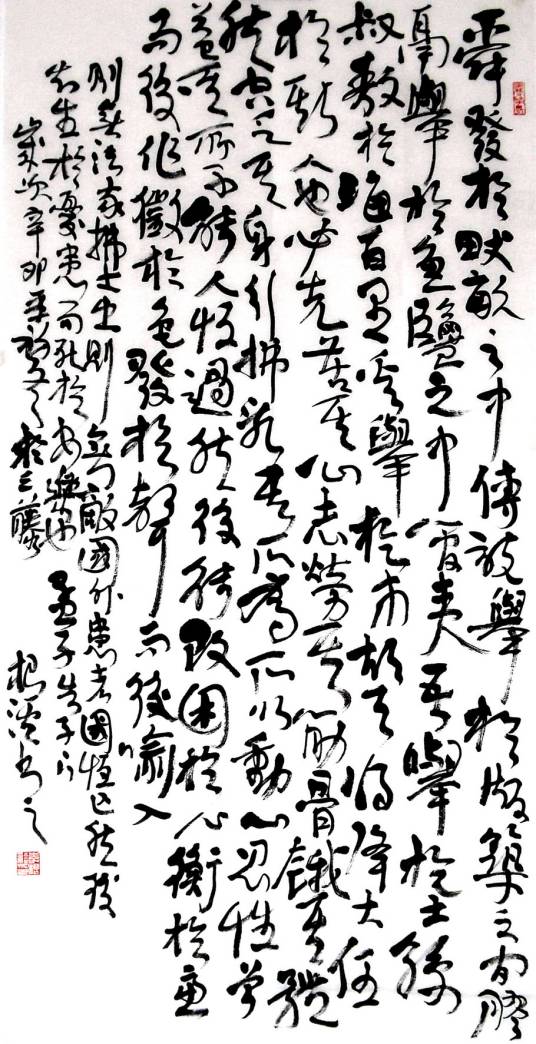 舜發於畎畝之中傅說舉於版築之間膠
鬲舉於魚鹽之中管夷吾舉於士孫
叔敖於海百里奚舉於市故天將降大任
於斯人也必先苦其心志勞其筋骨餓其體
膚空乏其身行拂亂其所為所以動心忍性曾
益其所不能人恆過然後能改困於心衡於慮
而後作徵於色發於聲而後喻入
則無法家拂士出則無敵國外患者國恆亡然後
知生於憂患而死於安樂也 孟子告子下
歲次辛卯 於三 書之